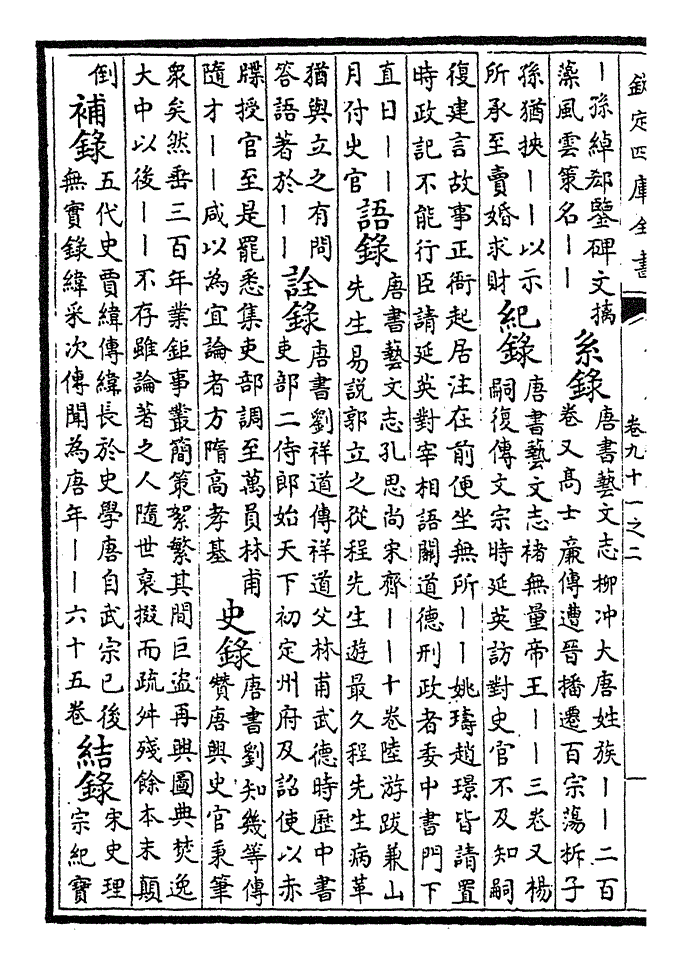 欽定四庫全書 卷九十一之二
丨孫綽郄鑒碑文摛
藻風雲策名丨丨
系錄
唐書藝文志柳冲大唐姓族丨丨二百
卷又髙士廉傳遭晉播遷百宗蕩析子
孫猶挾丨丨以示
所承至賣婚求財
紀錄
唐書藝文志褚無量帝王丨丨三卷又楊
嗣復傳文宗時延英訪對史官不及知嗣
復建言故事正衙起居注在前便坐無所丨丨姚璹趙璟皆請置
時政記不能行臣請延英對宰相語關道德刑政者委中書門下
直日丨丨
月付史官
語錄
唐書藝文志孔思尚宋齊丨丨十卷陸游跋兼山
先生易說郭立之從程先生遊最久程先生病革
猶與立之有問
答語著於丨丨
詮錄
唐書劉祥道傳祥道父林甫武德時歷中書
吏部二侍郎始天下初定州府及詔使以赤
牒授官至是罷悉集吏部調至萬員林甫
隨才丨丨咸以為宜論者方隋高孝基
史錄
唐書劉知幾等傳
贊唐興史官秉筆
衆矣然垂三百年業鉅事叢簡策挐繁其間巨盜再興圖典焚逸
大中以後丨丨不存雖論著之人隨世裒掇而疏舛殘餘本末顛
倒
補錄
五代史賈緯傳緯長於史學唐自武宗已後
無實錄緯采次傳聞為唐年丨丨六十五卷
結錄
宋史理
宗紀寶